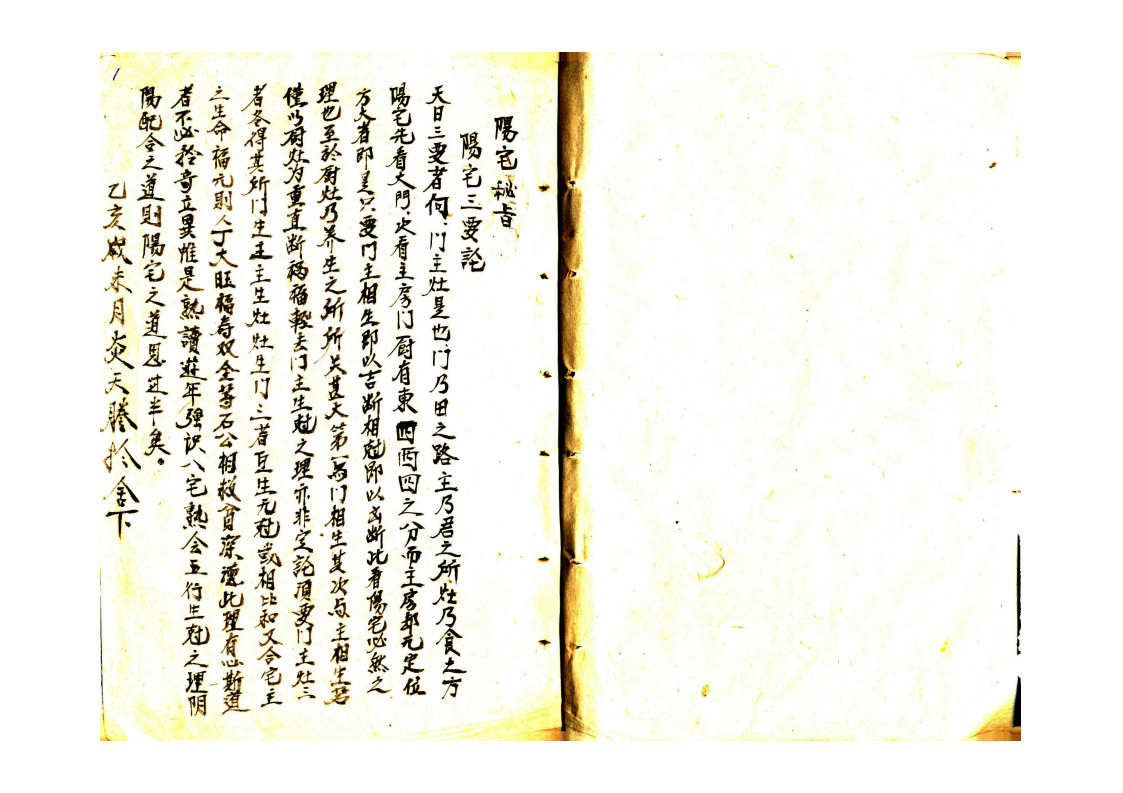 陽宅秘旨
陽宅三要訟
天曰三要者何、门主灶是也、门乃田之路主乃君之所、灶乃食之方
陽宅先看大门、次看主房门厨有東四西四之分而主房却无定位
方大者即是只要门主相生即以吉断相尅即以凶断此看陽宅必然之
理也至於厨灶乃养生之所所关甚大第一与门相生其次与主相生若
僅以厨灶为重直断祸福輕去门主生尅之理亦非定訟須要门主灶三
者各得其所门生主主生灶灶生门三者互生无尅或相比和又合宅主
之生命福元則人丁大旺福寿双全等石公相救貧深德此理有心斯道
者不必矜奇立異惟是熟讀遊年强识八宅熟会五行生尅之理阴
陽配合之道則陽宅之道思过半矣。
乙亥歲未月炎天謄於舍下